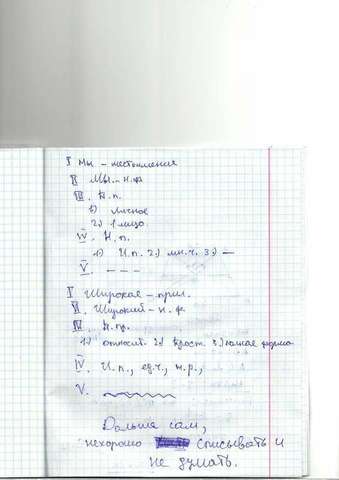 I Мы - местоимения
II Мы - н.ф.
III. П.п.
1) личное
2) 1 лицо.
IV. Н.п.
1) И.п. 2) мн.ч. 3) —
V. – – –
I Широкая - прил.
II. Широкий - н.ф.
III. П.пр.
1) относит. 2) краст. 3) полная форма
IV. И.п., ед.ч., м.р.,
V.
Дальше сам,
нехорошо списывать и
не думать.